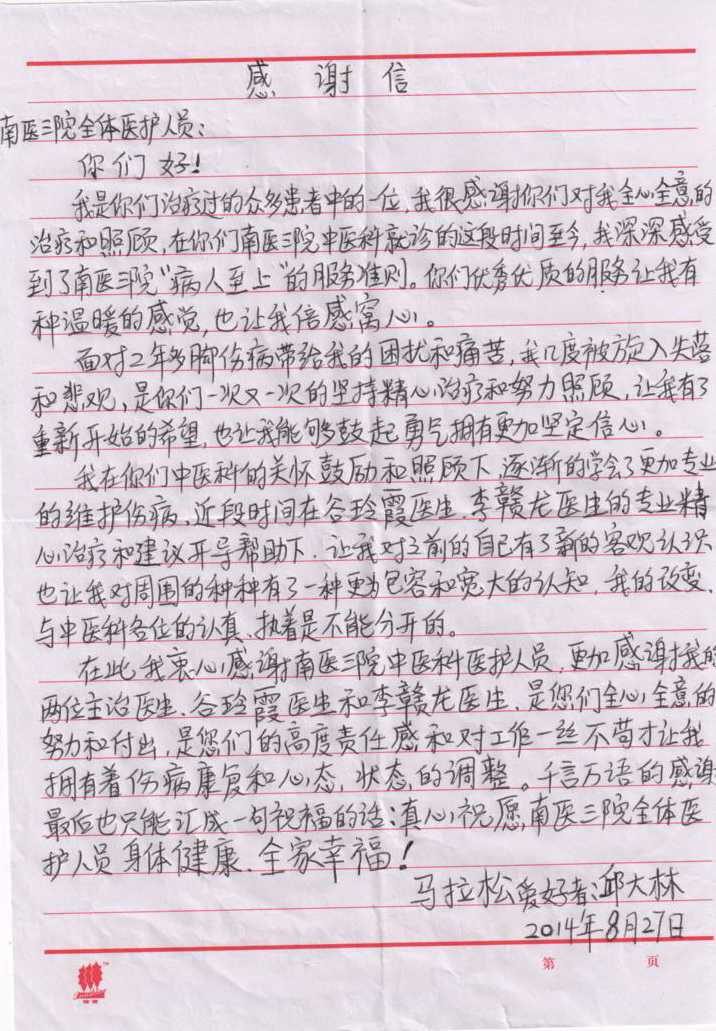 感谢信
南医三院全体医护人员：
你们好！
我是你们治疗过的众多患者中的一位，我很感谢你们对我全心全意的
治疗和照顾，在你们南医三院中医科就诊的这段时间至今，我深深感受
到了南医三院“病人至上”的服务准则。你们优秀优质的服务让我有
种温暖的感觉，也让我倍感窝心。
面对2年多脚伤病带给我的困扰和痛苦，我几度被旋入失落
和悲观，是你们一次又一次的坚持精心治疗和努力照顾，让我有了
重新开始的希望，也让我能够鼓起勇气拥有更加坚定信心。
我在你们中医科的关怀鼓励和照顾下，逐渐的学会了更加专业
的维护伤病，近段时间在谷玲霞医生、李赣龙医生的专业精
心治疗和建议开导帮助下，让我对之前的自己有了新的客观认识
也让我对周围的种种有了一种更为包容和宽大的认知，我的改变，
与中医科各位的认真、执着是不能分开的。
在此我衷心感谢南医三院中医科医护人员，更加感谢我的
两位主治医生、谷玲霞医生和李赣龙医生，是您们全心全意的
努力和付出，是您们的高度责任感和对工作一丝不苟才让我
拥有着伤病康复和心态，状态的调整。千言万语的感谢
最后也只能汇成一句祝福的话：真心祝愿南医三院全体医
护人员身体健康、全家幸福！
马拉松爱好者：邱大林
2014年8月27日
第 页